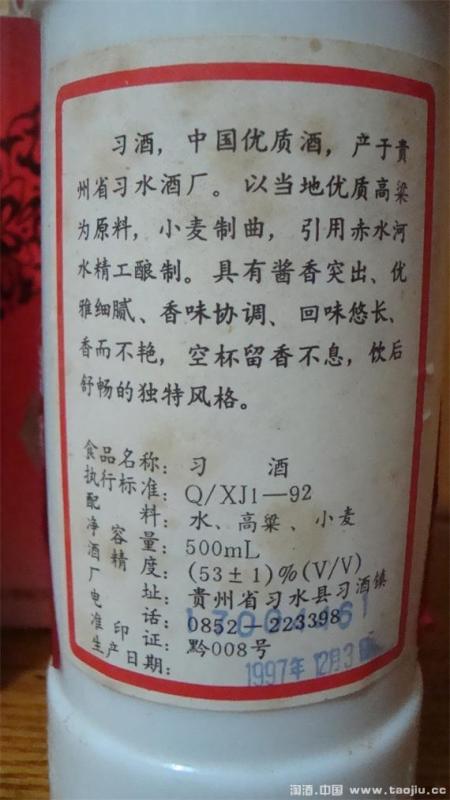 习酒，中国优质酒，产于贵
州省习水酒厂。以当地优质高粱
为原料，小麦制曲，引用赤水河
水精工酿制。具有酱香突出、优
雅细腻、香味协调、回味悠长、
香而不艳，空杯留香不息，饮后
舒畅的独特风格。
食品名称：习 酒
执行标准：Q/XJ1—92
配 料：水、高粱、小麦
净 容 量：500mL
酒 精 度：(53±1)%(V/V)
厂 址：贵州省习水县习酒镇
电 话：0852—223398
准 印 证：黔008号
生产日期：
1997年12月3
淘酒.中国 www.taojiu.cc